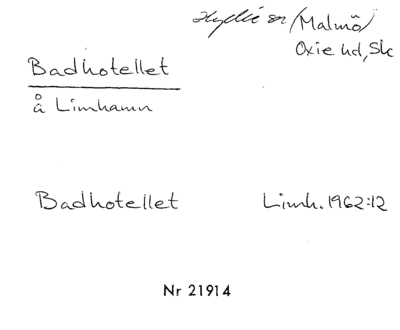 Hyllie sn (Malmö)
Oxie hd, Sk
Badhotellet
å Limhamn
Badhotellet Limh. 1962:12
Nr 21914